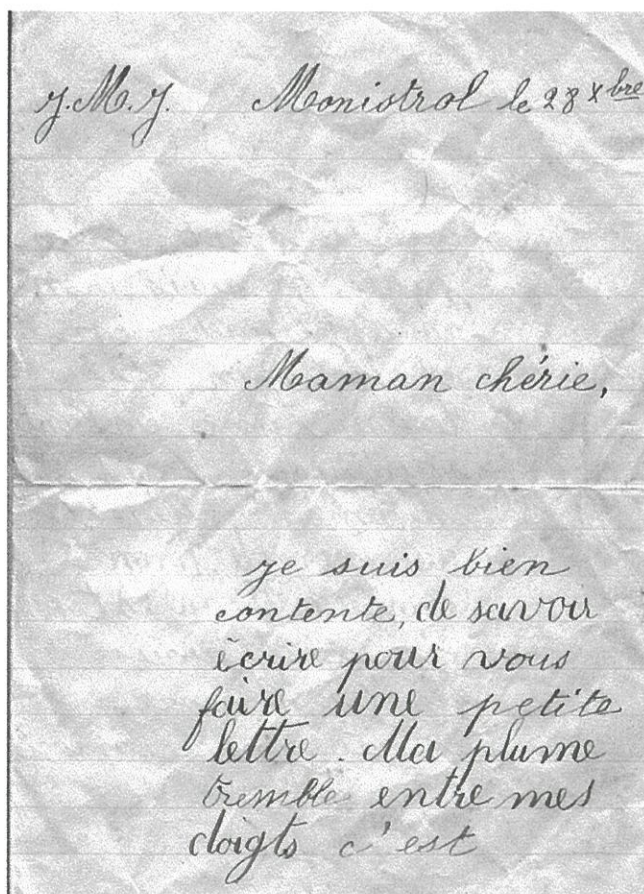 J.M.J. Monistrol le 28 Xbre
Maman chérie,
je suis bien
contente, de savoir
écrire pour vous
faire une petite
lettre. Ma plume
tremble entre mes
doigts c'est